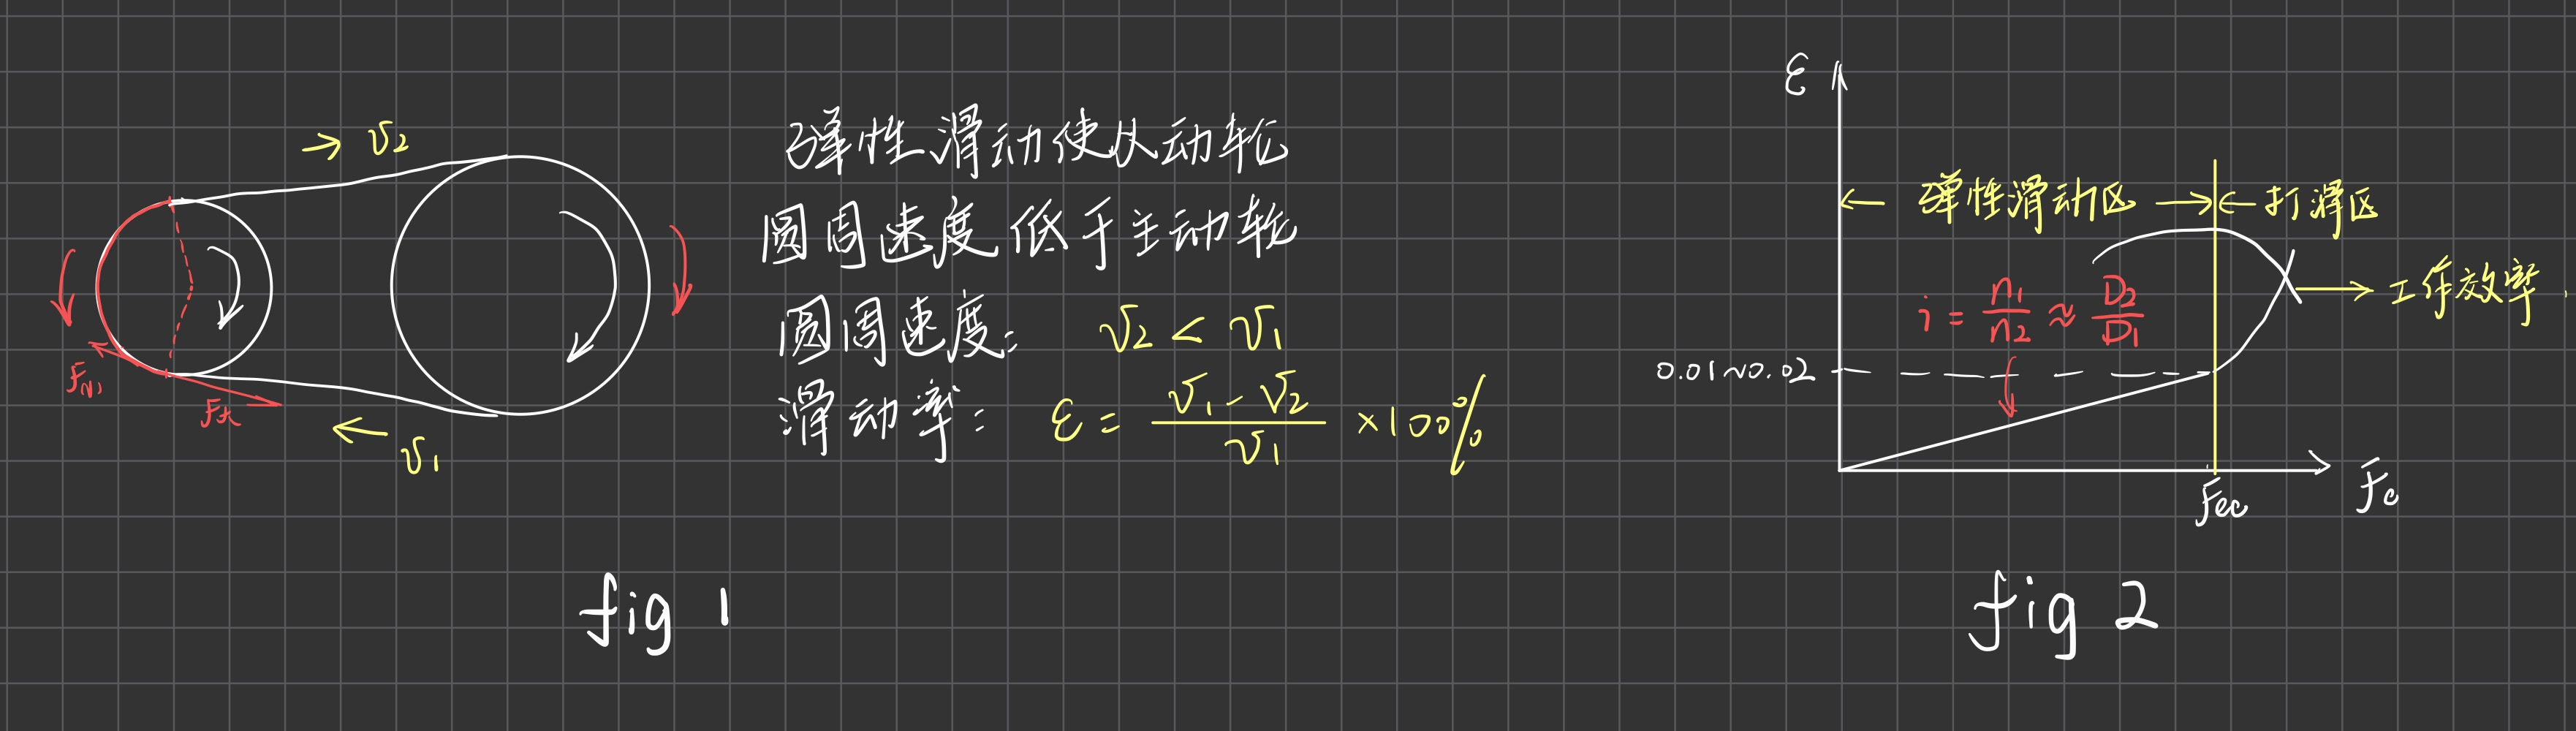 → v₂
F小
F大
← v₁
弹性滑动使从动轮
圆周速度低于主动轮
圆周速度: v₂ < v₁
滑动率: ε = (v₁ - v₂) / v₁ ×100%
fig 1
ε
← 弹性滑动区 → ← 打滑区
i = n₁/n₂ ≈ D₂/D₁
→ 工作效率
0.01~0.02
Fec
fig 2